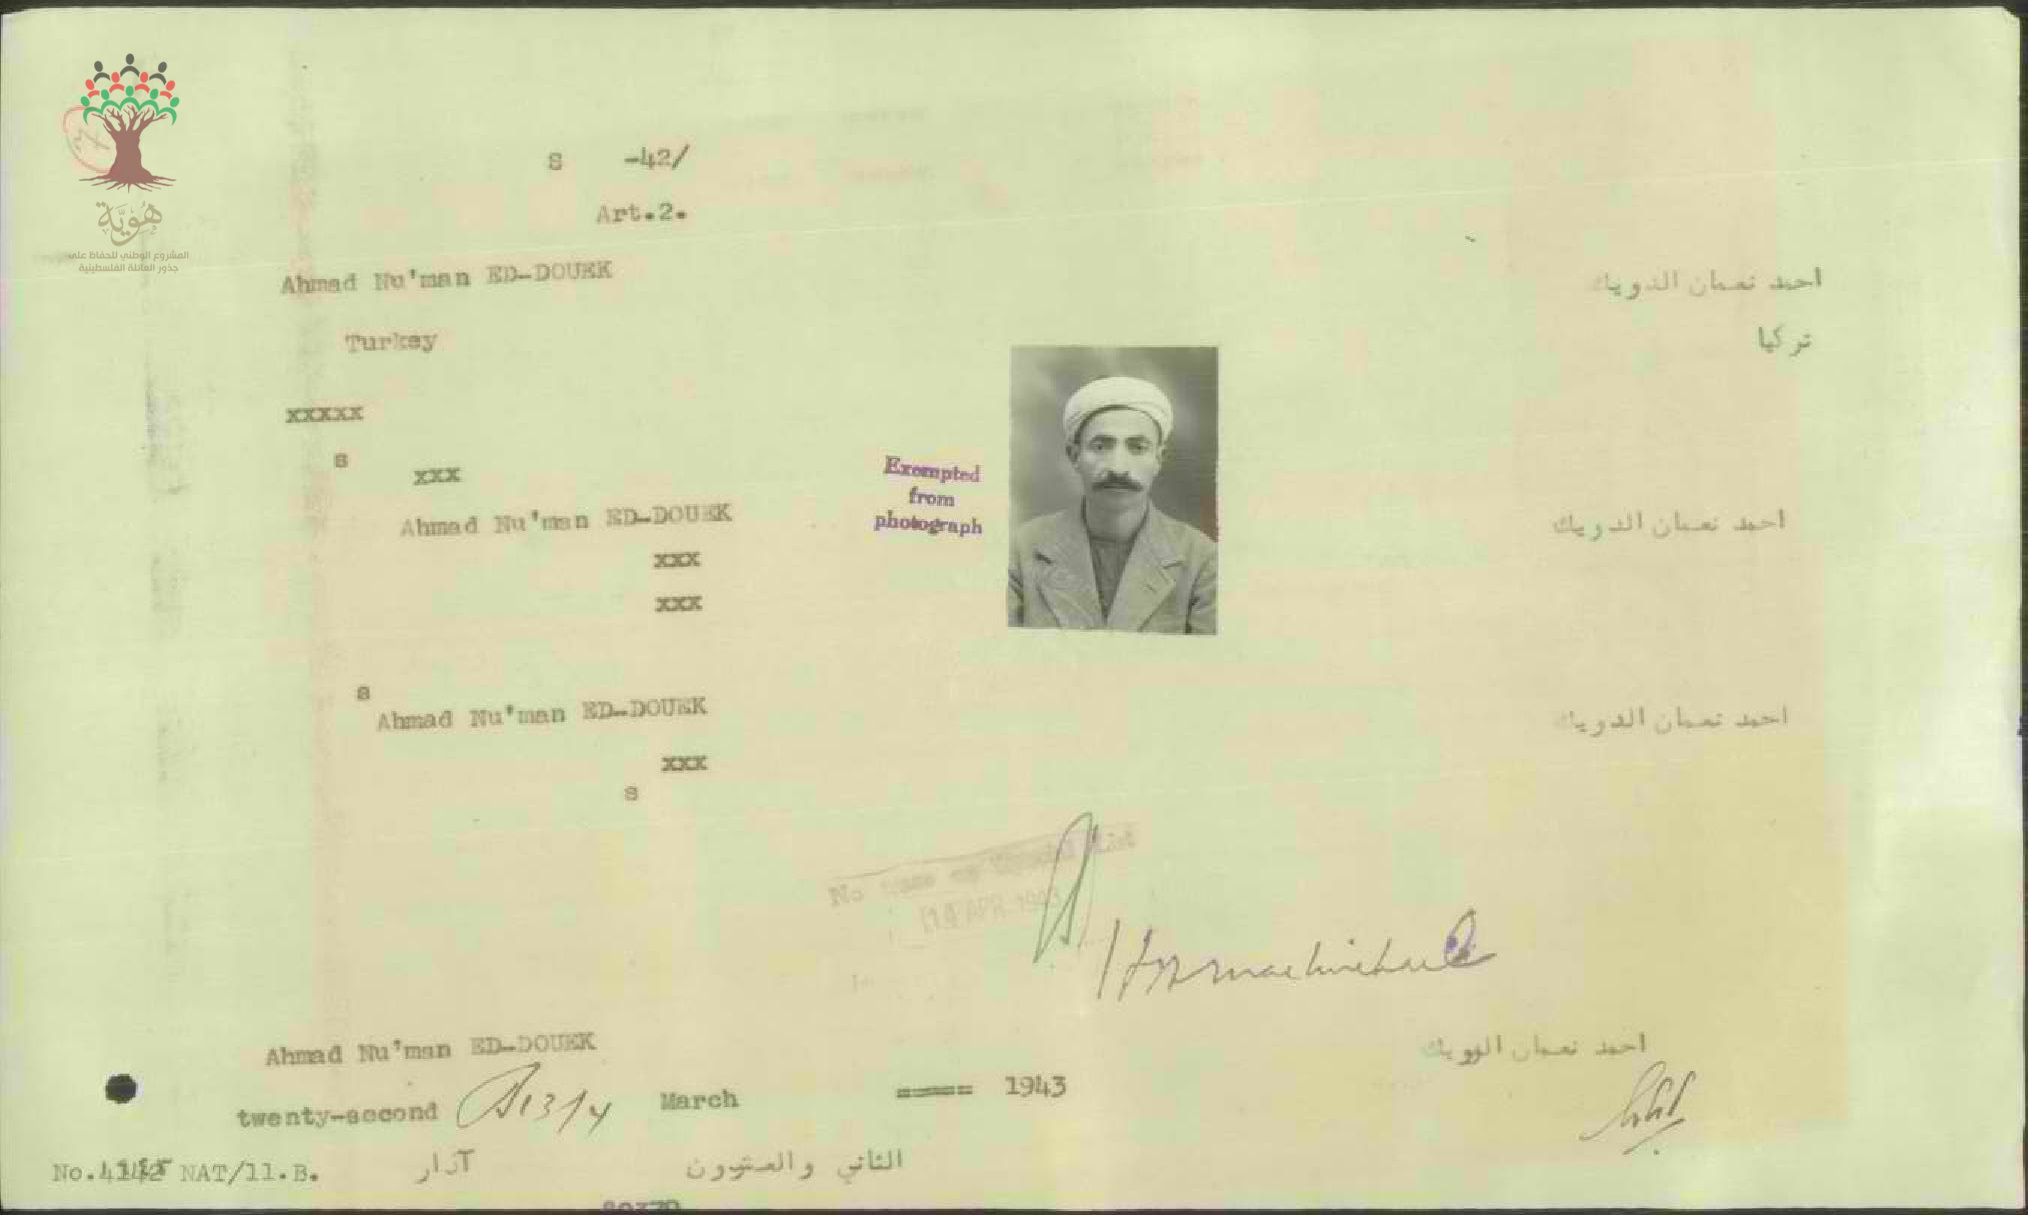 هُوِيَّة
المشروع الوطني للحفاظ على
جذور العائلة الفلسطينية
S -42/
Art.2.
Ahmad Nu'man ED-DOUEK
احمد نعمان الدويك
Turkey
تركيا
xxxxx
s
xxx
Exempted
from
photograph
Ahmad Nu'man ED-DOUEK
احمد نعمان الدويك
xxx
xxx
s
Ahmad Nu'man ED-DOUEK
احمد نعمان الدويك
xxx
s
No name on List
14 APR 1943
Ahmad Nu'man ED-DOUEK
احمد نعمان
twenty-second March ===== 1943
No. NAT/11.B.
آذار
الثاني والعشرون